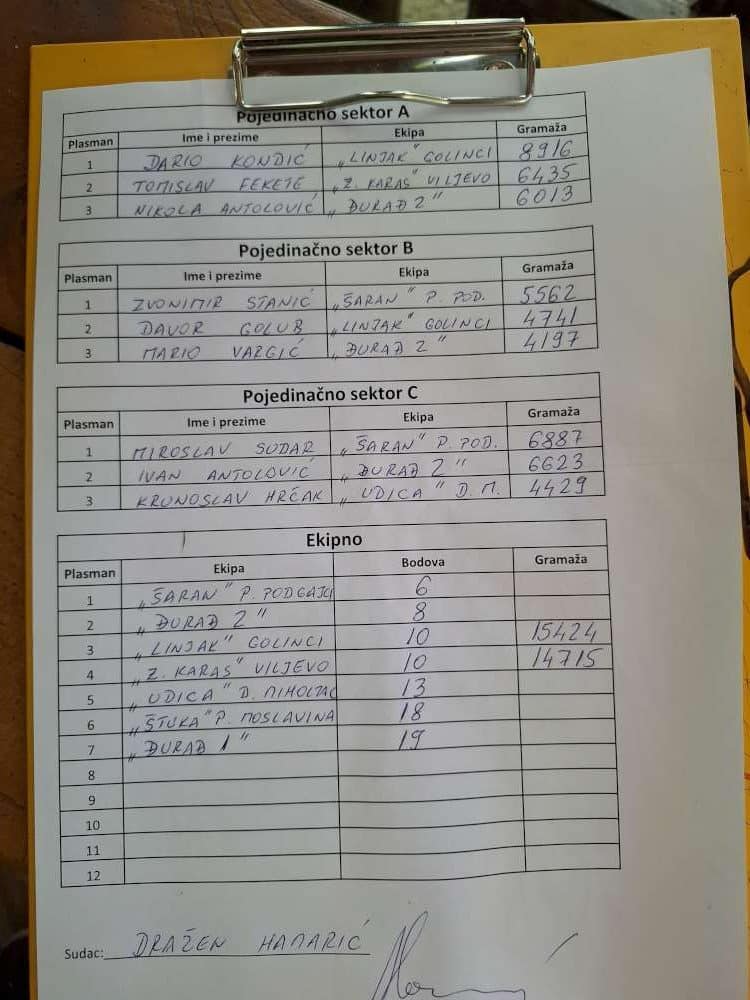 Pojedinačno sektor A
Plasman Ime i prezime Ekipa Gramaža
1 DARIO KONDIĆ „LINJAK" GOLINCI 8916
2 TOMISLAV FEKETE „Z. KARAS" VILJEVO 6435
3 NIKOLA ANTOLOVIĆ „ĐURAĐ 2" 6013
Pojedinačno sektor B
Plasman Ime i prezime Ekipa Gramaža
1 ZVONIMIR STANIĆ „ŠARAN" P. POD. 5562
2 DAVOR GOLUB „LINJAK" GOLINCI 4741
3 MARIO VARGIĆ „ĐURAĐ 2" 4197
Pojedinačno sektor C
Plasman Ime i prezime Ekipa Gramaža
1 MIROSLAV SUDAR „ŠARAN" P. POD. 6887
2 IVAN ANTOLOVIĆ „ĐURAĐ 2" 6623
3 KRUNOSLAV HRČAK „UDICA" D. M. 4429
Ekipno
Plasman Ekipa Bodova Gramaža
1 „ŠARAN" P. PODGAJCI 6
2 „ĐURAĐ 2" 8
3 „LINJAK" GOLINCI 10 15424
4 „Z. KARAS" VILJEVO 10 14715
5 „UDICA" D. MIHOLJAC 13
6 „ŠTUKA" P. MOSLAVINA 18
7 „ĐURAĐ 1" 19
8
9
10
11
12
Sudac: DRAŽEN HAMARIĆ